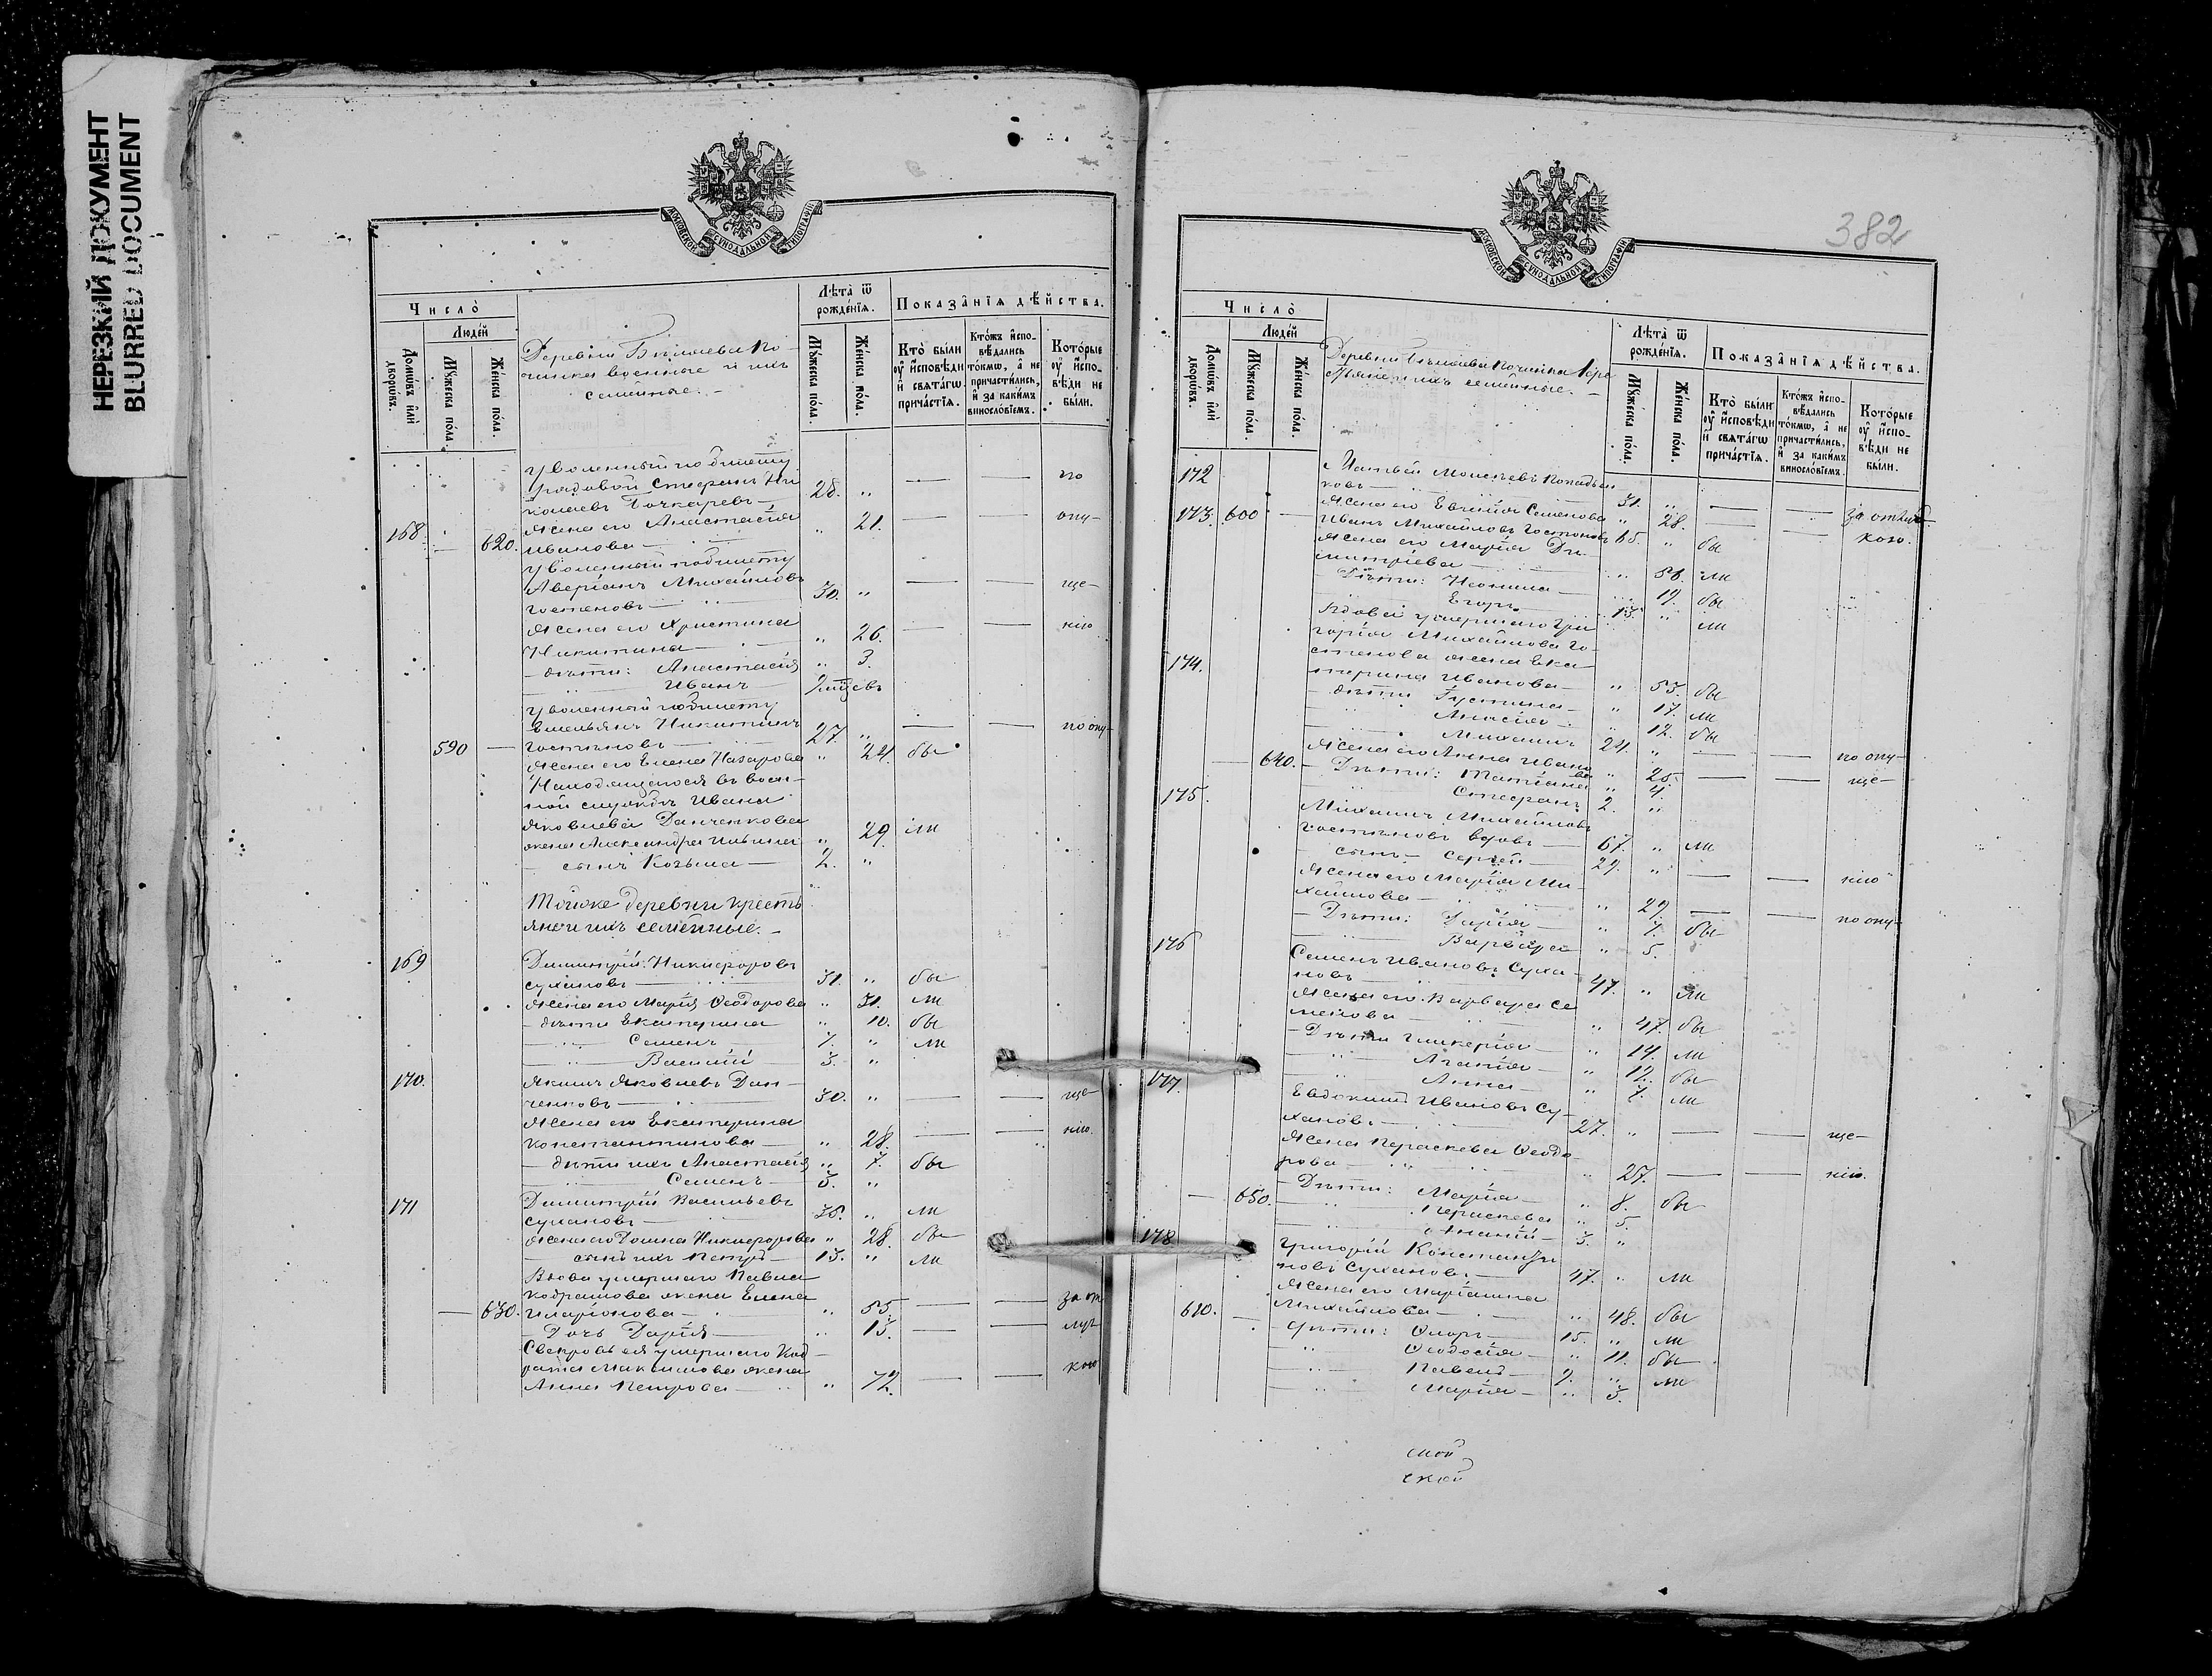 НЕРЕЗКИЙ ДОКУМЕНТ
BLURRED DOCUMENT
МОСКОВСКОЙ СѴНОДАЛЬНОЙ ТИПОГРАФІИ
Число̀
Людéй
Домѡ́въ и҆лѝ дворѡ́въ.
Мꙋ́жеска по́ла.
Же́нска по́ла.
Деревни Починка военные и ихъ семейные. -
Лѣта̀ ѿ рожде́нїѧ.
Мꙋ́жеска по́ла
Же́нска по́ла.
Показа̑нїѧ дѣ́йства.
Кто̀ бы́ли ᲂу҆ и҆сповѣ́ди и҆ свѧта́гѡ прича́стїѧ.
Кто́жъ и҆сповѣ́дались то́кмѡ, а҆ не причасти́лись, и҆ за каки́мъ винослові́емъ.
Кото́рые ᲂу҆ и҆сповѣ́ди не бы́ли.
Уволенный по билету
рядовой Стефанъ Ни
колаевъ Бочкаревъ — 28. „ — — по
Жена его Анастасія
168. 620. Иванова — „ 21. — — опу-
Уволенный по билету
Аверіанъ Михайловъ
Гостеновъ — 30. „ — — ще-
Жена его Христина
Никитина — „ 26. — — нію
- дѣти: Анастасія „ 3.
Иванъ —
Уволенный по билету
Емельянъ Никитинъ
590 — Гостеновъ — 27. „ — — по опу-
Жена его Елена Назарова „ 24. бы
Находящегося въ воен-
ной службѣ Ивана
Яковлева Данченкова
жена Александра Ильина „ 29. ли
— сынъ Козьма — 2. „
Той же деревни кресть
яне и ихъ семейные. -
169 Димитрій Никифоровъ
Сухановъ — 31. „ бы
Жена его Марія Ѳеодорова „ 31. ли
- дѣти Екатерина „ 10. бы
Семенъ — 7. „ ли
Василій 3. „
170. Якимъ Яковлевъ Дан-
ченковъ — 30. „ — — ще-
Жена его Екатерина
Константинова — „ 28. — — нію.
- дѣти ихъ Анастасія „ 7. бы
Семенъ — 3. „
171 Димитрій Васильевъ
Сухановъ — „ ли
Жена его Домна Никифорова „ 28. бы
- сынъ ихъ Петръ — 13. „ ли
Вдова умершаго Павла
Кодратова жена Елена
— 630. Иларіонова — „ 55. — — за от
- Дочь Дарія — „ 15. — — луч
Свекровь ея умершаго Код-
рата Максимова жена
Анна Петрова — „ 72. — — кою
382
МОСКОВСКОЙ СѴНОДАЛЬНОЙ ТИПОГРАФІИ
Число̀
Людéй
Домѡ́въ и҆лѝ дворѡ́въ.
Мꙋ́жеска по́ла.
Же́нска по́ла.
Деревни Починка Кре
стьяне и ихъ семейные. -
Лѣта̀ ѿ рожде́нїѧ.
Мꙋ́жеска по́ла.
Же́нска по́ла.
Показа̑нїѧ дѣ́йства.
Кто̀ бы́ли ᲂу҆ и҆сповѣ́ди и҆ свѧта́гѡ прича́стїѧ.
Кто́жъ и҆сповѣ́дались то́кмѡ, а҆ не причасти́лись, и҆ за каки́мъ винослові́емъ.
Кото́рые ᲂу҆ и҆сповѣ́ди не бы́ли.
172 Матвѣй Моисеевъ
ковъ — 31. „ — — за отлуч
Жена его Евгенія Семенова „ 28. — — кою.
173. 600 — Иванъ Михайловъ Гостеновъ 65. „ бы
Жена его Марія Ди-
митріева — „ 58. ли
- Дѣти: Неонила — 19. бы
Егоръ — 13. „ ли
Вдова умершаго Гри
горія Михайлова Го-
174. стенова жена Ека
терина Иванова — „ 53. бы
- дѣти Густина — „ 17. ли
Анастія — „ 12. бы
Михаилъ 24. „ — — по опу-
— 640. Жена его Анна Иванова „ 25. — — ще-
- Дѣти: Татіана „ 4.
Стефанъ 2. „
175. Михаилъ Михайловъ
Гостеновъ вдовъ — 67. „ ли
- сынъ - Сергей — 29. „ — — нію
Жена его Марія Ми-
хайлова — „ 29. — — по опу-
- Дѣти: Дарія — „ 7. бы
Варвара „ 5.
176 Семенъ Ивановъ Суха-
новъ — 47. „ ли
Жена его Варвара Се
менова — „ 47. бы
- Дѣти Гликерія — „ 14. ли
Агапія — „ 12. бы
Анна — „ 7. ли
177. Евдокимъ Ивановъ Су-
хановъ — 27. „ — — ще-
Жена Параскева Ѳеодо-
рова — „ 27. — — нію.
— 650. - Дѣти: Марія — „ 8. бы
Параскева „ 5.
Ананій — 3. „
178 Григорій Константи
новъ Сухановъ. 47. „ ли
Жена его Маріамна
610. — Михайлова — „ 48. бы
- дѣти: — 15. „ ли
Ѳеодосія — „ 11. бы
Павелъ — 9. „ ли
Марія — „ 3.
ской